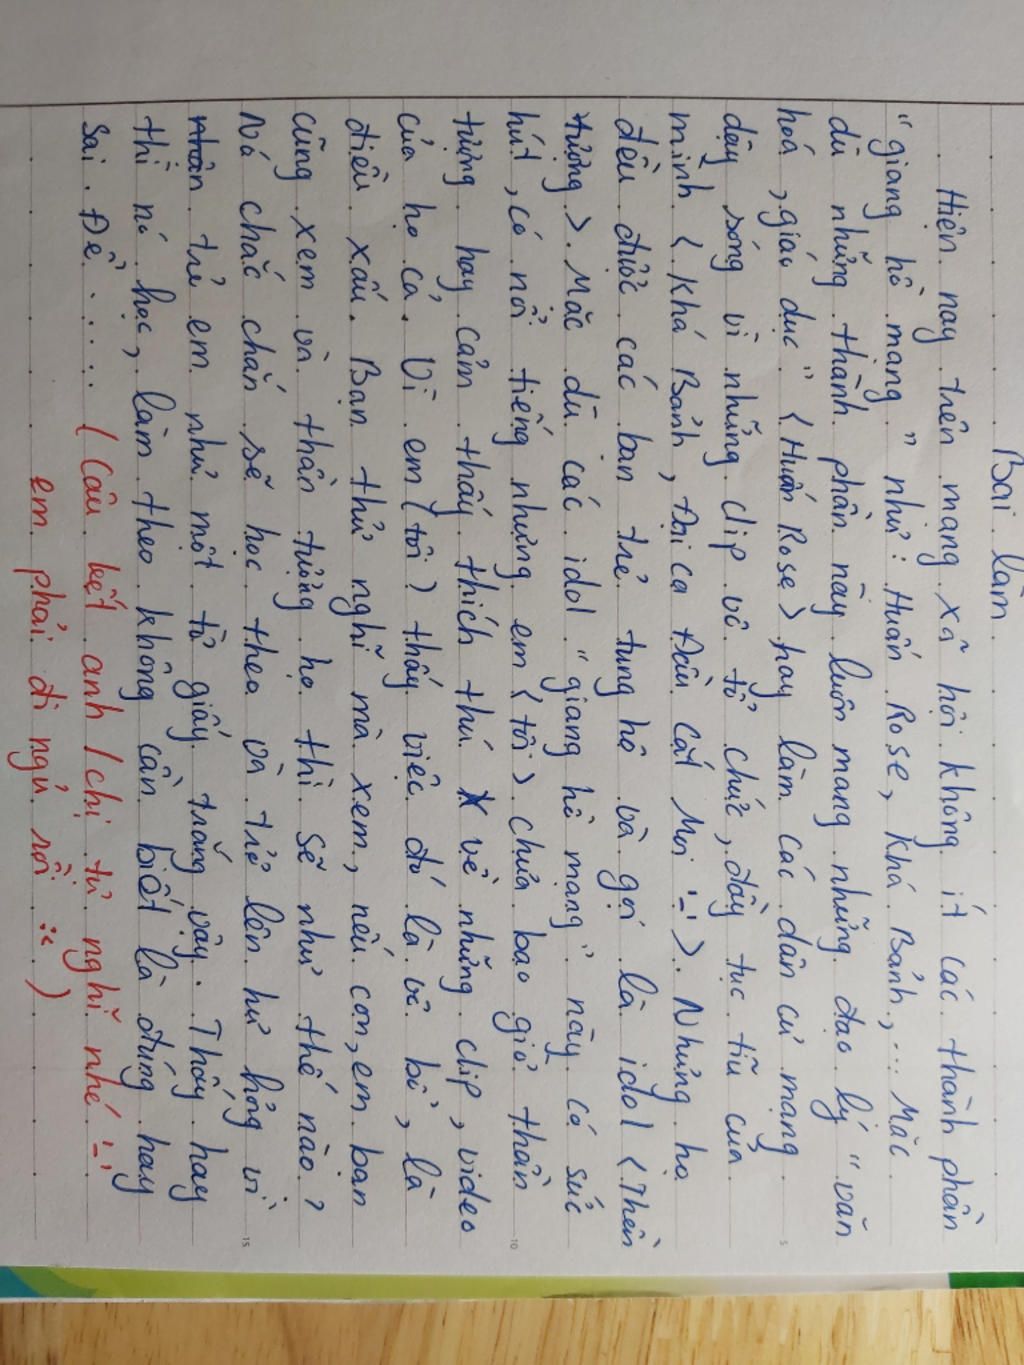 Bài làm
Hiện nay trên mạng xã hội không ít các thành phần
"giang hồ mạng" như: Huấn Rose, Khá Bảnh,... Mặc
dù những thành phần này luôn mang những đạo lý "văn
hoá, giáo dục" <Huấn Rose> hay làm các dân cư mạng
dậy sóng vì những clip vô tổ chức, đầy tục tĩu của
mình <Khá Bảnh, Đại ca Đầu Cắt Moi :-'>. Nhưng họ
đều được các bạn trẻ tung hô và gọi là idol <Thần
tượng>. Mặc dù các idol "giang hồ mạng" này có sức
hút, có nổi tiếng nhưng em <tôi> chưa bao giờ thần
tượng hay cảm thấy thích thú về những clip, video
của họ cả. Vì em (tôi) thấy việc đó là vô bổ, là
điều xấu. Bạn thử nghĩ mà xem, nếu con, em bạn
cũng xem và thần tượng họ thì sẽ như thế nào?
Nó chắc chắn sẽ học theo và trở lên hư hỏng vì
trẻ em như một tờ giấy trắng vậy. Thấy hay
thì nó học, làm theo không cần biết là đúng hay
sai. Để..... (Câu kết anh/chị tự nghĩ nhé :-'
em phải đi ngủ rồi :<)
5
10
15